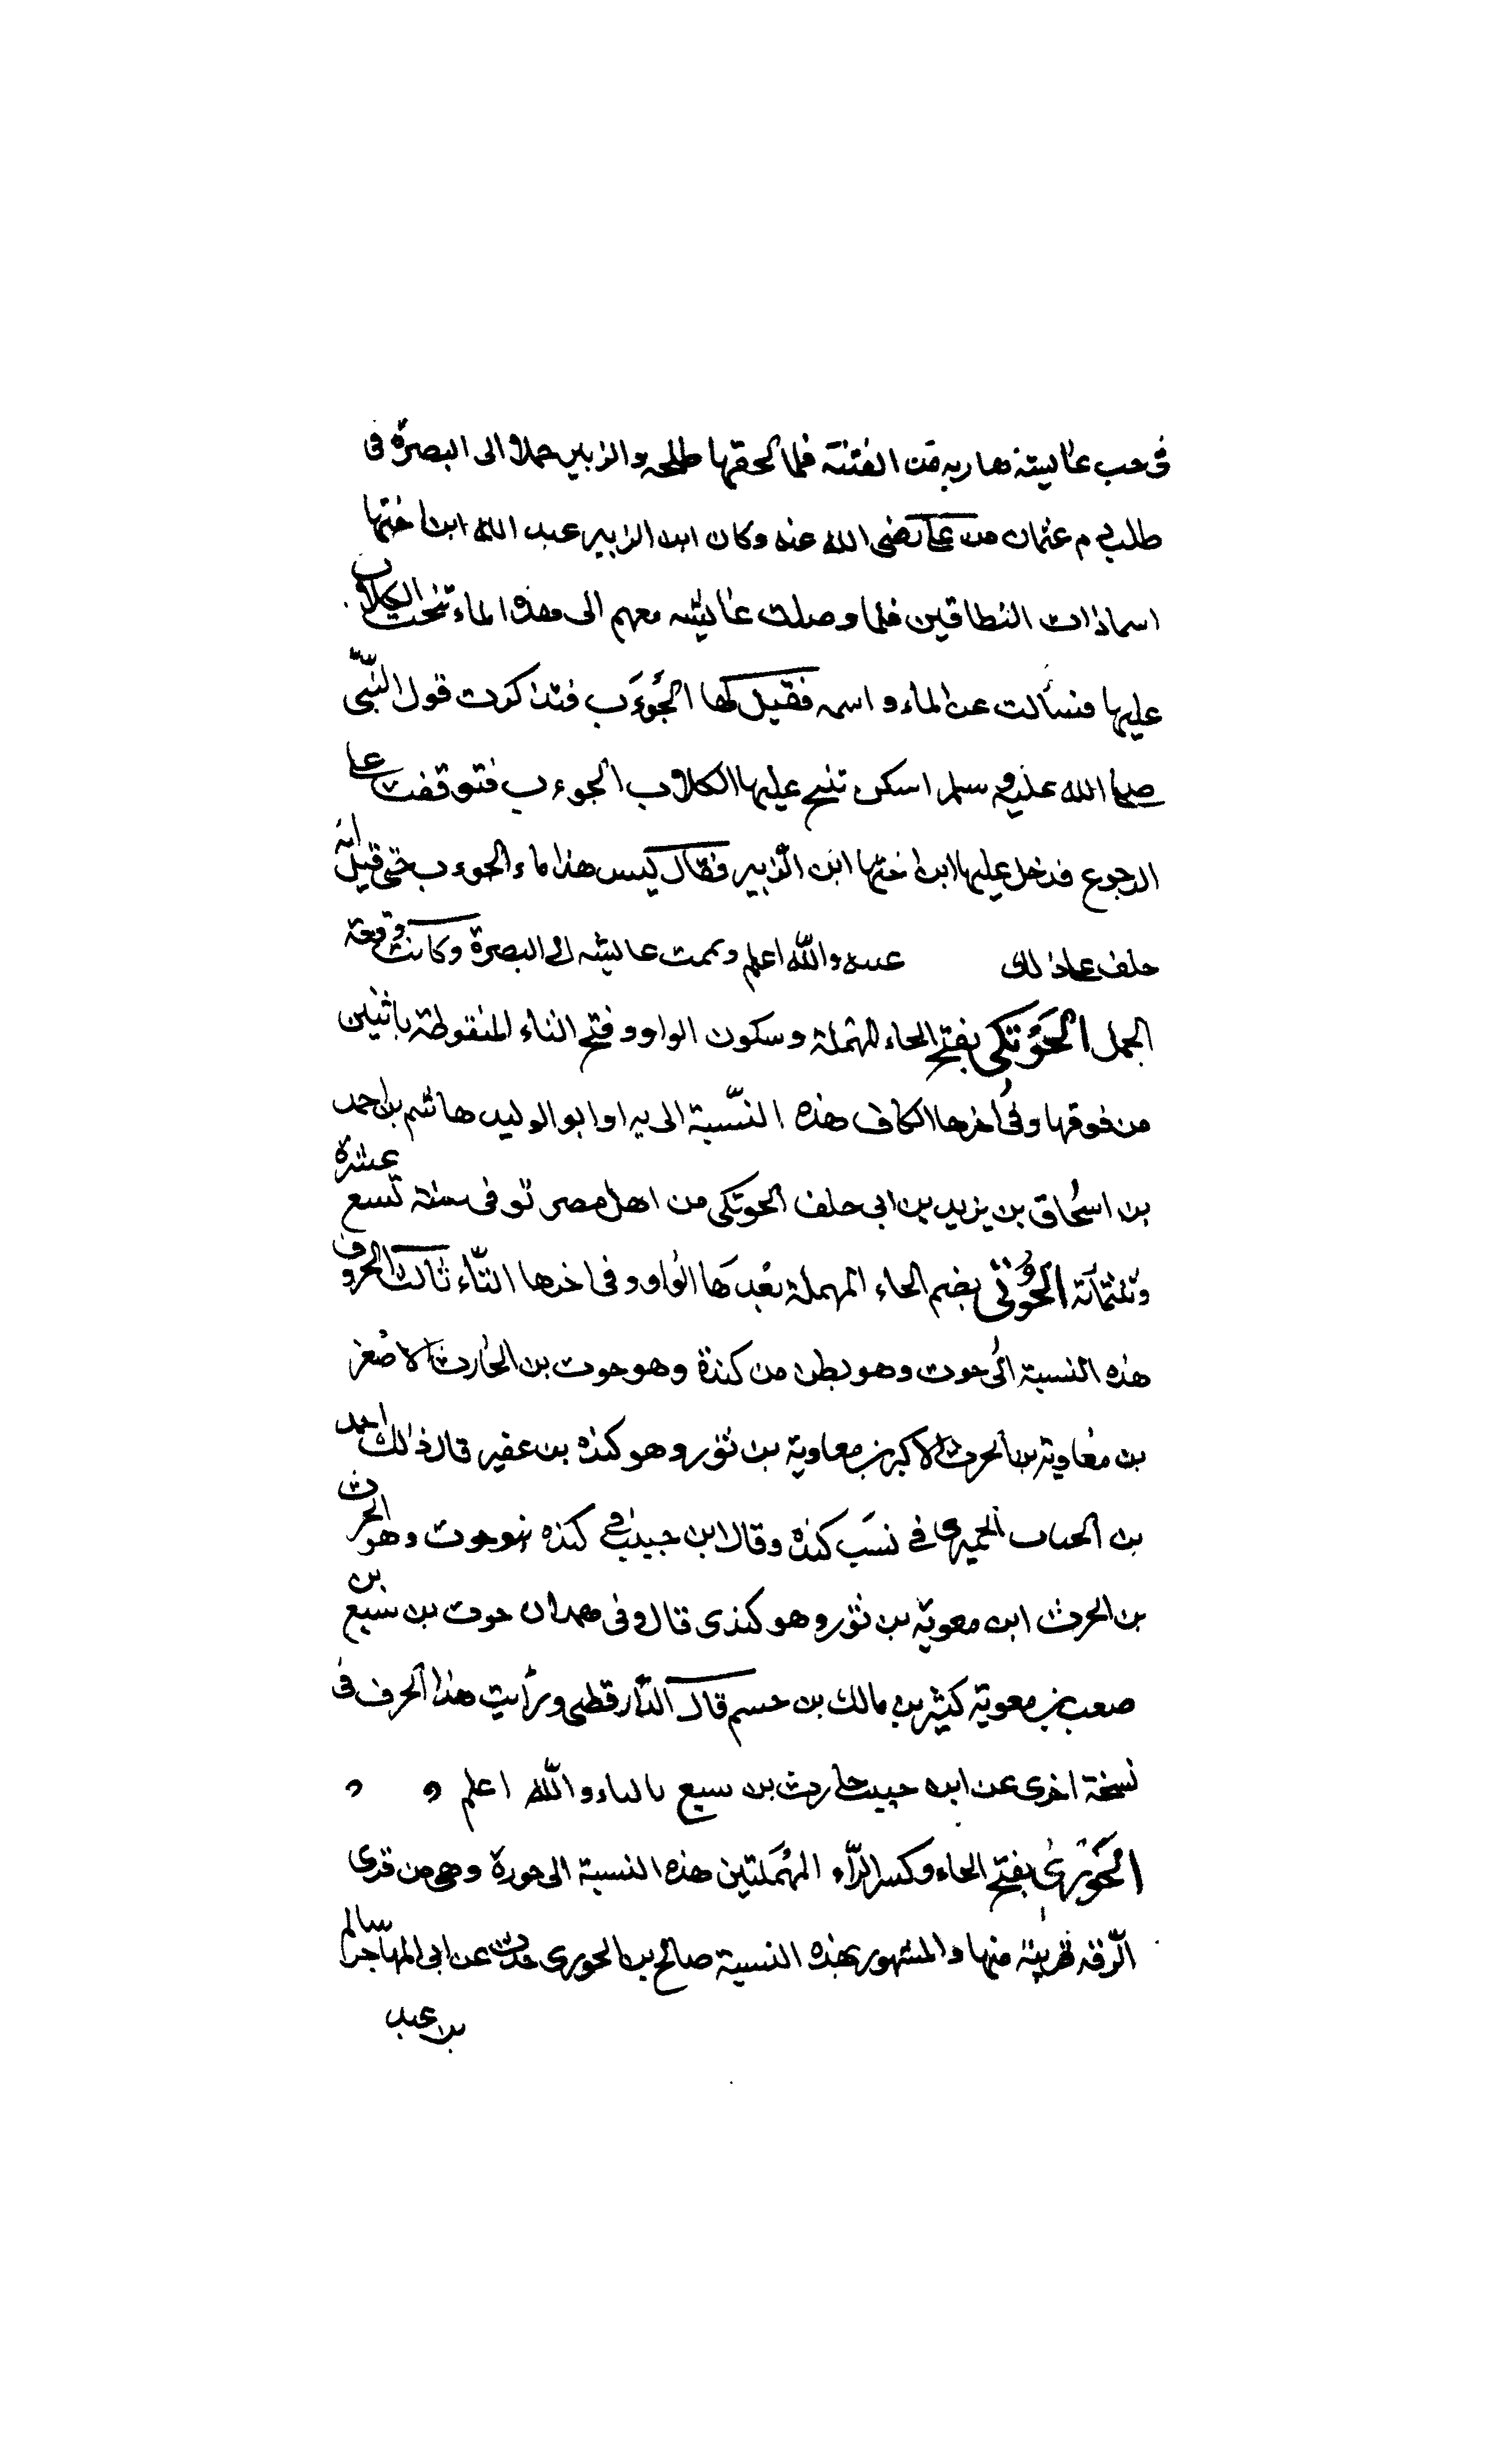 فى حب عاليشة هاربة من الفتنة فلما لحقها طلحه والزبير حملاها الى البصرة فى
طلب دم عثمان من على رضى الله عنه وكان ابن الزبير عبد الله ابن اختها
اسما ذات النطاقين فلما وصلت عاليشه معهم الى هذا الماء نبحت الكلاب
عليها فسألت عن الماء و اسمه فقيل لها الحَوءَب فتذاكرت قول النّبّى
صلى الله عليه وسلم اسكن تنبح عليها الكلاب الحوءب فتوقفت على
الرجوع فدخل عليها ابن اختها ابن الزّبير فقال ليس هذا ماء الحوءب حتى قيل انه
حلف على ذلك والله اعلم ويممت عاليشه الى البصرة وكانت وقعة
الجمل الحَوْتَكى بفتح الحاء المهملة وسكون الواو وفتح التاء المنقوطة باثنين
من فوقها وفى اخرها الكاف هذه النّسبة الى ابو الوليد هاشم بن احمد
بن اسحاق بن يزيد بن ابى خلف الحوتكى من اهل مصر توفى سنة تسع عشرة
وثلثمائة الحُوْتى بضم الحاء المهملة بعدها الواو وفى اخرها التّاء ثالث الحروف
هذه النسبة الى حوت وهو بطن من كندة وهو حوت بن الحارث الاصغر
بن معاوية بن الحرث الاكبر بن معاوية بن ثور وهو كنده بن عفير قال ذلك احمد
بن الحباب الحميرى فى نسب كندة وقال ابن حبيب فى كنده بنو حوت وهو الحرث
بن الحرث ابن معوية بن ثور وهو كندى قال وفى همدان حوت بن سبع بن
صعب بن معوية كثير بن مالك بن جسم قال الدّارقطنى ورأيت هذا الحرف فى
نسخة اخرى عن ابن حبيب حارث بن سبيع بالباء والله اعلم
الحَوَرِى بفتح الحاء وكسر الرّاء المهملتين هذه النسبة الى حورة وهى من قرى
الرّقه قريبة منها والمشهور بهذه النسبة صالح بن الحورى حدث عن ابى المهاجر سالم
بن عبد